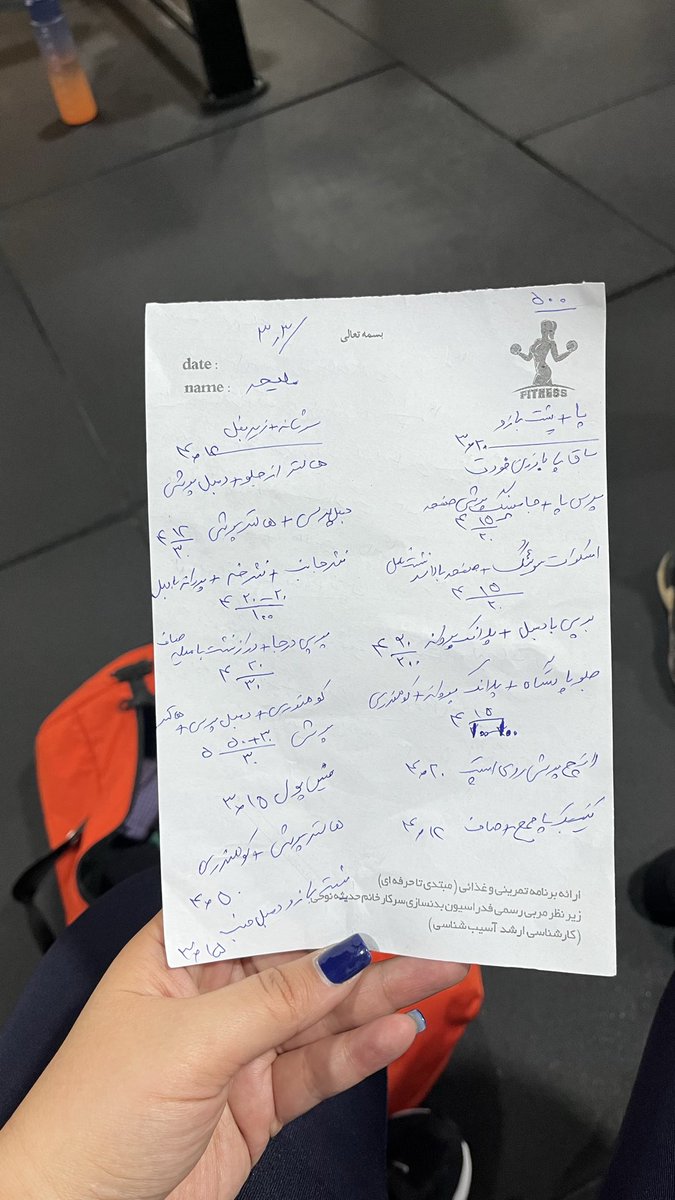 ۵۰۰
بسمه تعالی
۳,۳
date :
name : ملیحه
FITNESS
پا + پشت بازو
۳×۲۰
ساق پا بازری خودت
پرس پا + جامپینگ پرشی صفحه
۴ ۱۵/۲۰
اسکوات سوئنگ + صفحه بالا سر نشست بغل
۴ ۱۵/۲۰
برپی با دمبل + پلانک پروانه ۴ ۳۰/۲۰۰
جلو پا دستگاه + پلانک پروانه + کوهنوردی
۴ ۱۵
لانج پرشی روی استپ ۴×۲۰
کیک بک پا جمع و صاف ۴×۱۲
سرشانه + زیر بغل
هالتر از جلو + دمبل پرشی
دمبل پرس + هالتر پرشی ۴ ۱۲/۳۰
نشر جانب + نشر خم + پروانه با دمبل
۴ ۲۰-۲۰/۱۰۰
برپی درجا + دراز نشست با میله صاف
۴ ۲۰/۳۰
کوهنوردی + دمبل پرس + هالتر
پرشی ۵ ۵۰+۳۰/۳۰
۳×۱۵
هالتر پرشی + کوهنوردی
۴×۵۰
پشت بازو دمبل خم
۳×۱۵
ارائه برنامه تمرینی و غذائی (مبتدی تا حرفه ای)
زیر نظر مربی رسمی فدراسیون بدنسازی سرکار خانم حدیثه نوحی
(کارشناسی ارشد آسیب شناسی)